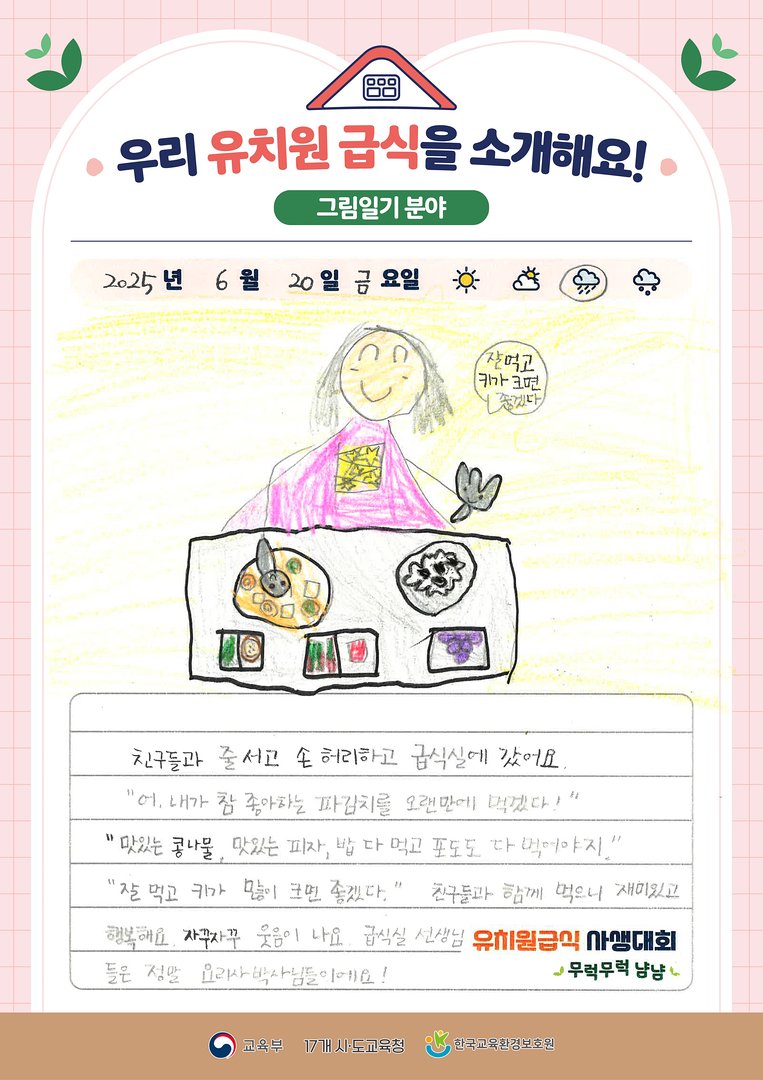 우리 유치원 급식을 소개해요!
그림일기 분야
2025년 6월 20일 금요일
잘먹고
키가 크면
좋겠다
친구들과 줄서고 손 허리하고 급식실에 갔어요.
"어, 내가 참 좋아하는 파김치를 오랜만에 먹겠다!"
"맛있는 콩나물, 맛있는 피자, 밥 다 먹고 포도도 다 먹어야지."
"잘 먹고 키가 많이 크면 좋겠다." 친구들과 함께 먹으니 재미있고
행복해요. 자꾸자꾸 웃음이 나요. 급식실 선생님
들은 정말 요리사 박사님들이에요!
유치원급식 사생대회
무럭무럭 냠냠
교육부 17개 시·도교육청 한국교육환경보호원